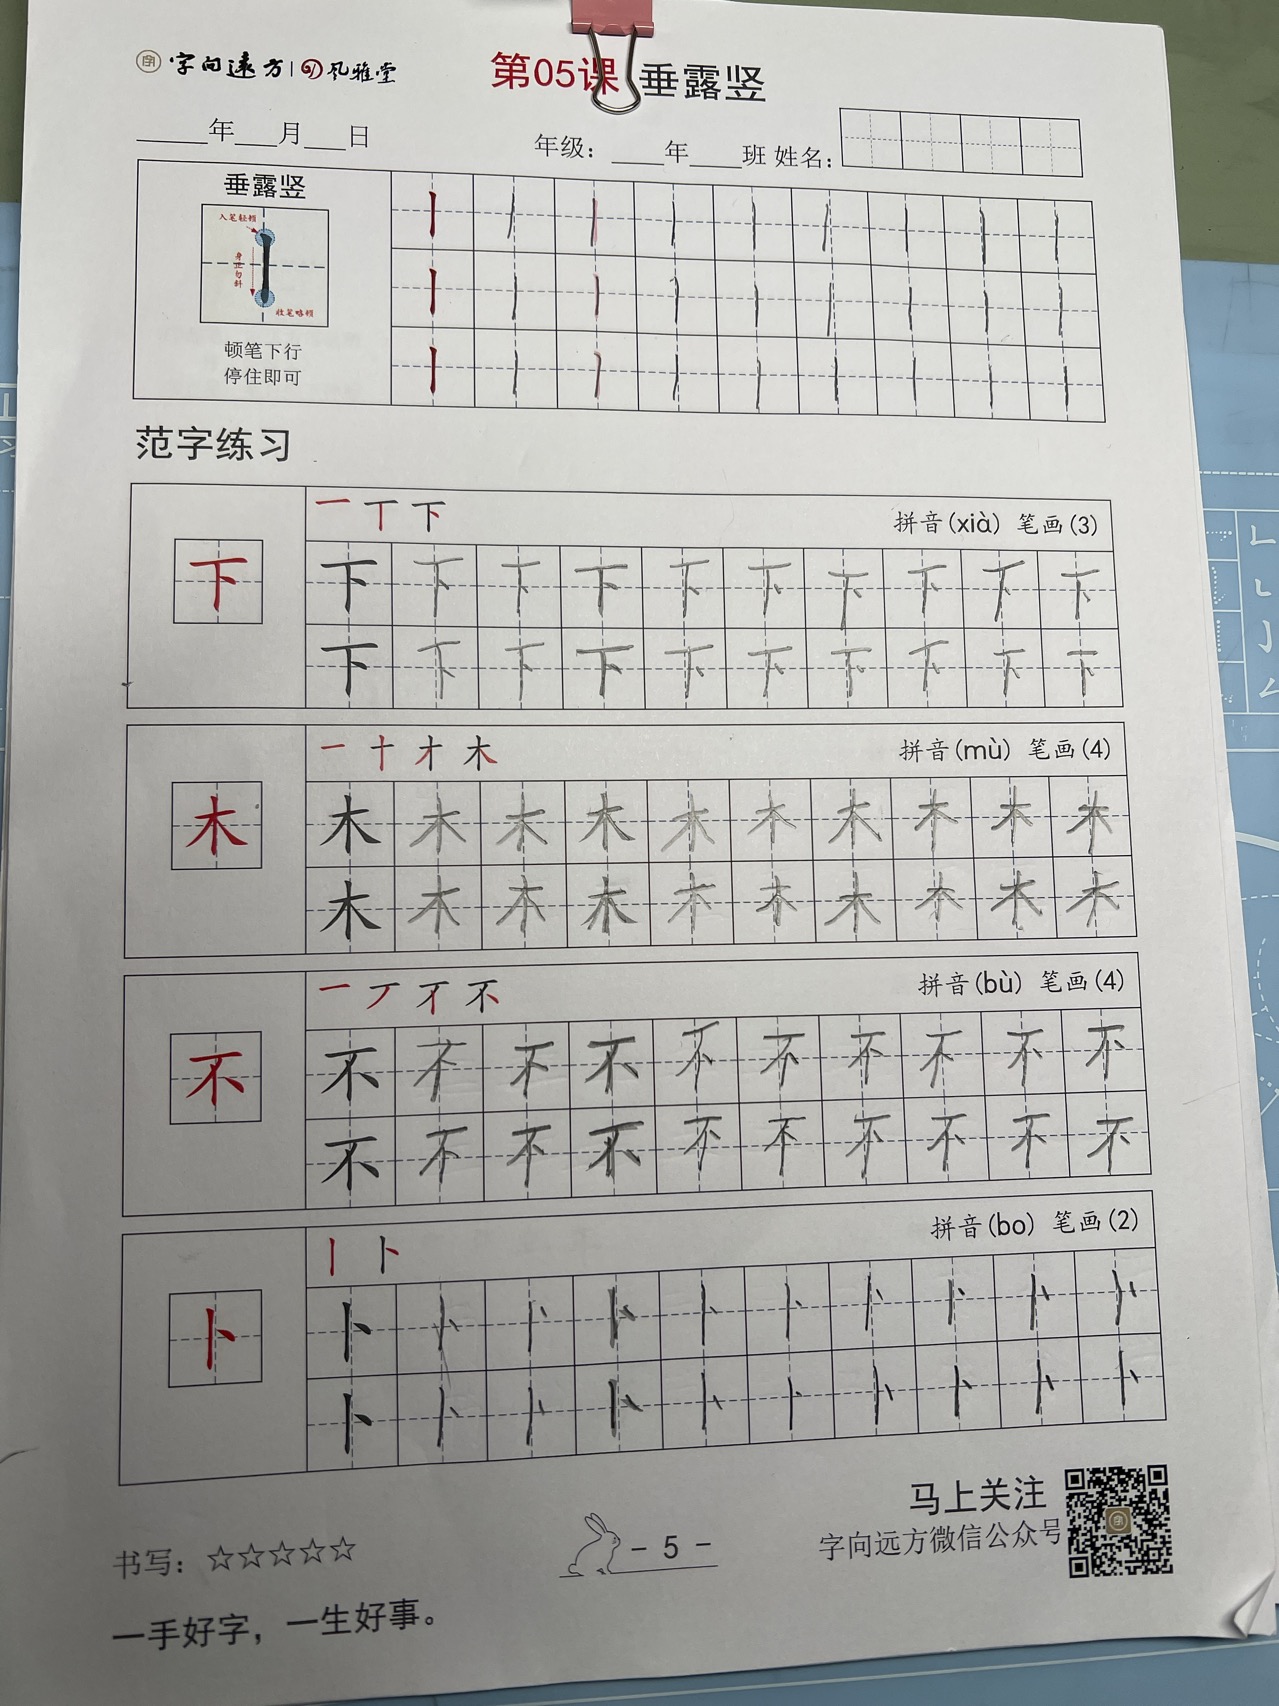 字向远方 | 风雅堂
第05课 垂露竖
____年___月___日 年级：____年____班 姓名：
垂露竖
入笔轻顿
身正勿斜
收笔略顿
顿笔下行
停住即可
范字练习
一 丅 下 拼音(xià) 笔画(3)
下 下 下 下 下 下 下 下 下 下 下
下 下 下 下 下 下 下 下 下 下
一 十 才 木 拼音(mù) 笔画(4)
木 木 木 木 木 木 木 木 木 木 木
木 木 木 木 木 木 木 木 木 木
一 丆 不 拼音(bù) 笔画(4)
不 不 不 不 不 不 不 不 不 不 不
不 不 不 不 不 不 不 不 不 不
丨 卜 拼音(bo) 笔画(2)
卜 卜 卜 卜 卜 卜 卜 卜 卜 卜 卜
卜 卜 卜 卜 卜 卜 卜 卜 卜 卜
马上关注
书写：☆☆☆☆☆ - 5 - 字向远方微信公众号
一手好字，一生好事。